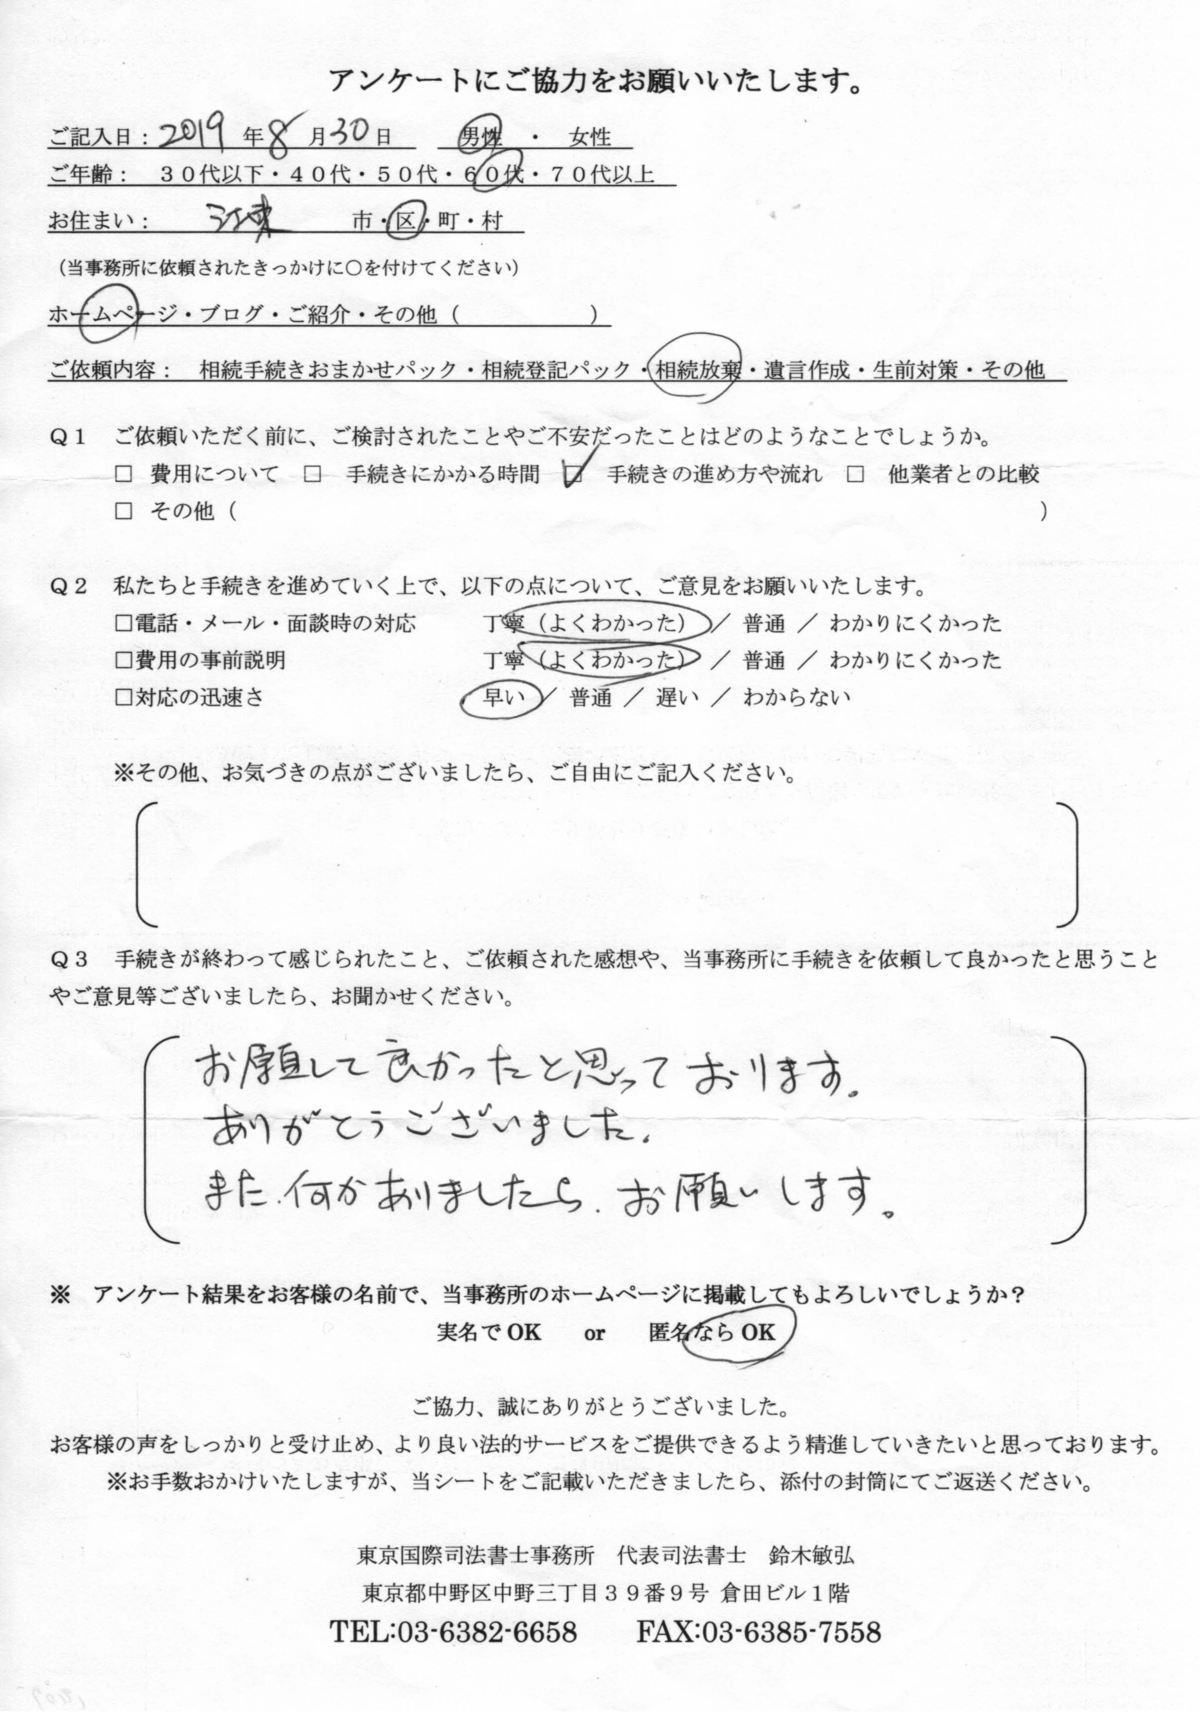 アンケートにご協力をお願いいたします。
ご記入日：2019 年 8 月 30 日　男性　・　女性
ご年齢：　３０代以下・４０代・５０代・６０代・７０代以上
お住まい：　江東　市・区・町・村
（当事務所に依頼されたきっかけに〇を付けてください）
ホームページ・ブログ・ご紹介・その他（　　　　　　）
ご依頼内容：　相続手続きおまかせパック・相続登記パック・相続放棄・遺言作成・生前対策・その他
Ｑ１　ご依頼いただく前に、ご検討されたことやご不安だったことはどのようなことでしょうか。
□ 費用について　□ 手続きにかかる時間　☑ 手続きの進め方や流れ　□ 他業者との比較
□ その他（　　　　　　　　　　）
Ｑ２　私たちと手続きを進めていく上で、以下の点について、ご意見をお願いいたします。
□電話・メール・面談時の対応　丁寧（よくわかった）／ 普通 ／ わかりにくかった
□費用の事前説明　丁寧（よくわかった）／ 普通 ／ わかりにくかった
□対応の迅速さ　早い ／ 普通 ／ 遅い ／ わからない
※その他、お気づきの点がございましたら、ご自由にご記入ください。
Ｑ３　手続きが終わって感じられたこと、ご依頼された感想や、当事務所に手続きを依頼して良かったと思うこと
やご意見等ございましたら、お聞かせください。
お願して良かったと思っております。
ありがとうございました。
また、何かありましたら、お願いします。
※　アンケート結果をお客様の名前で、当事務所のホームページに掲載してもよろしいでしょうか？
実名で OK　　or　　匿名なら OK
ご協力、誠にありがとうございました。
お客様の声をしっかりと受け止め、より良い法的サービスをご提供できるよう精進していきたいと思っております。
※お手数おかけいたしますが、当シートをご記載いただきましたら、添付の封筒にてご返送ください。
東京国際司法書士事務所　代表司法書士　鈴木敏弘
東京都中野区中野三丁目３９番９号 倉田ビル１階
TEL:03-6382-6658　　FAX:03-6385-7558